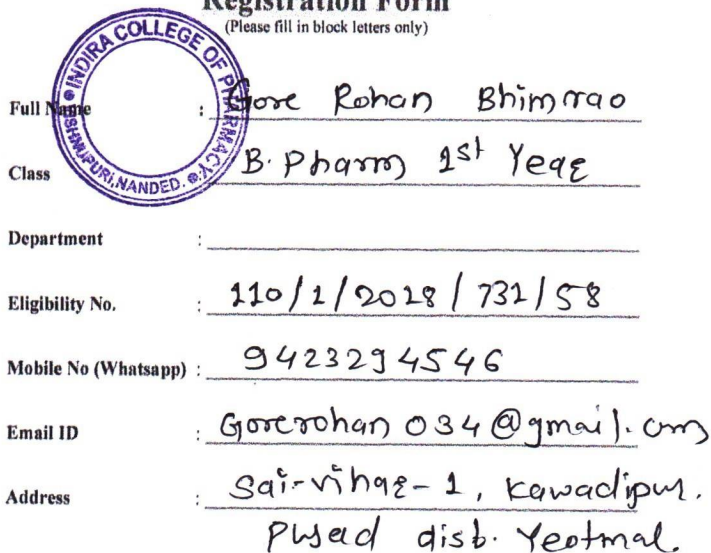 Registration Form
(Please fill in block letters only)
INDIRA COLLEGE OF PHARMACY
VISHNUPURI, NANDED.
Full Name : Gore Rohan Bhimrao
Class B. Pharm 1st Year
Department :
Eligibility No. : 110/1/2018/731/58
Mobile No (Whatsapp) : 9423294546
Email ID : Gorerohan034@gmail.com
Address : Sai-vihar-1, Kawadipur.
Pusad dist. Yeotmal.